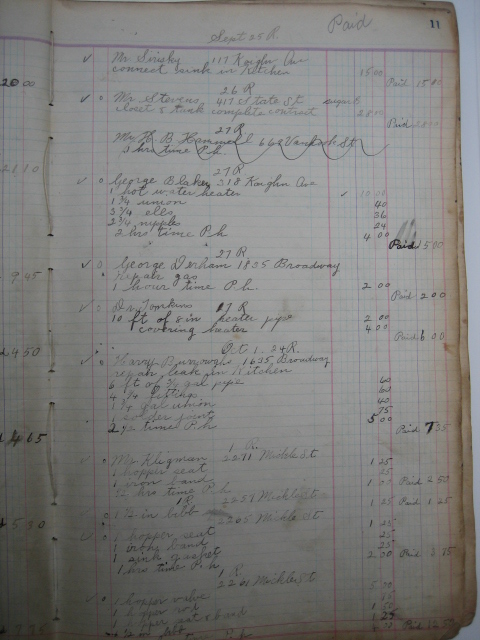 Paid 11
Sept 25 R.
Mr Sirisky 117 Kaighn Ave
connect sink in Kitchen 15 00 Paid 15 00
26 R
Mr Stevens 417 State St
closet & tank complete contract 28 00 Paid
27 R
Mr H. B Hammell 662 Van Hook St
3 hrs time P.h.
27 R
George Blakey 318 Kaighn Ave
1 hot water heater 10 00
1 3/4 union 40
3 3/4 ells 36
2 3/4 nipples 24
2 hrs time P.h 4 00
Paid 15 00
27 R
George Derham 1835 Broadway
repair gas
1 hour time P.h. 2 00
Paid 2 00
Dr Tomkins 27 R
10 ft of 8 in heater pipe 2 00
covering heater 4 00
Paid 6 00
Oct 1. 24 R.
Harry Burroughs 1635 Broadway
repair leak in Kitchen
6 ft of 3/4 gal pipe 60
4 3/4 fittings 60
1 3/4 gal union 40
1 solder joint 75
2 1/2 time P.h 5 00
Paid 7 35
1 R.
Mr Kligman 2271 Mickle St
1 hopper seat 1 25
1 iron band 25
1/2 hrs time P.h 1 00 Paid 2 50
1 R 2257 Mickle St
1 1/2 in bibb 1 25 Paid 1 25
2265 Mickle St
1 hopper seat 1 25
1 iron band 25
1 sink gasket 25
1 hrs time P.h 2 00 Paid 3 75
1 R
2261 Mickle St
1 hopper valve 5 00
1 hopper rod
1 hopper seat & band 1 50
1 1/2 in bibb 1 25